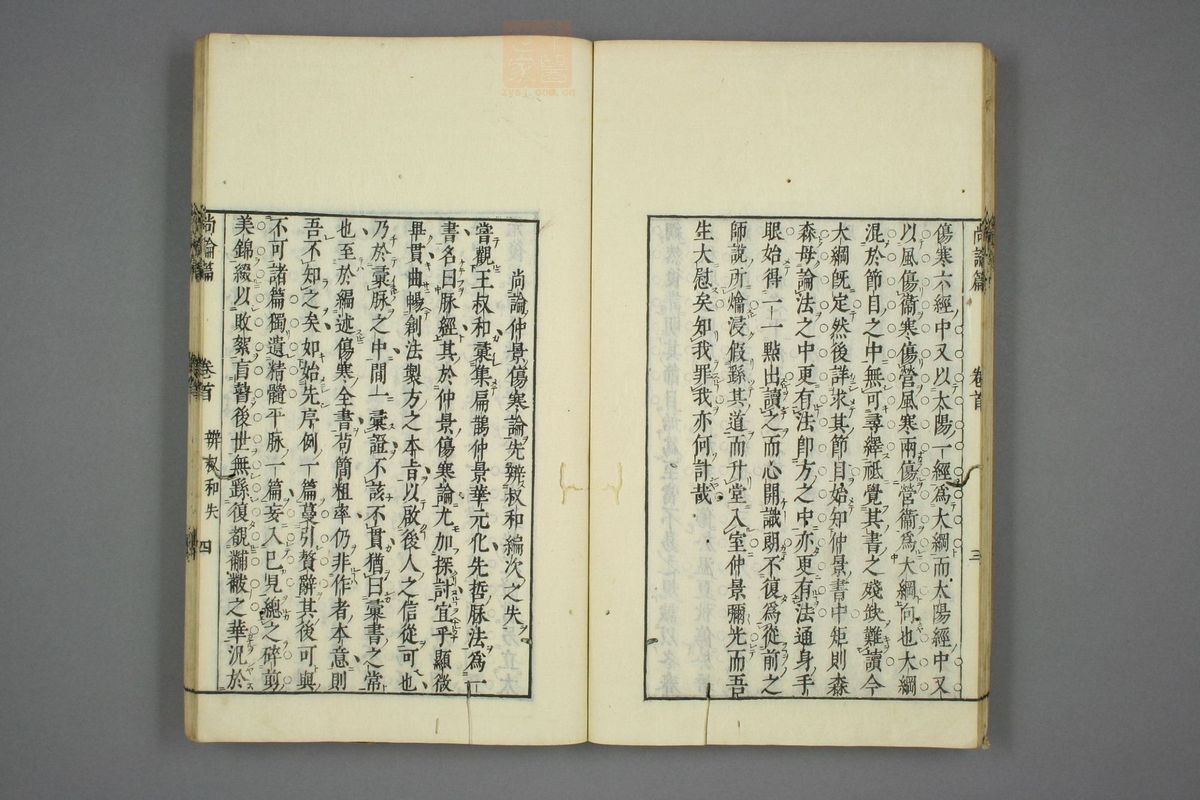 傷寒六經中又以太陽一經爲大綱而太陽經中又
以風傷衞寒傷營風寒兩傷營衞爲大綱何也大綱
混於節目之中無可尋繹祗覺其書之殘缺難讀今
大綱旣定然後詳求其節目始知仲景書中矩則森
森毋論法之中更有法卽方之中亦更有法通身手
眼始得一一點出讀之而心開識朗不復爲從前之
師說所燴浸假繇其道而升堂入室仲景彌光而吾
生大慰矣知我罪我亦何計哉
尚論篇
卷首
三
尚論仲景傷寒論先辨叔和編次之失
嘗觀王叔和彙集扁鵲仲景華元化先哲脉法爲一
書名曰脉經其於仲景傷寒論尤加探討宜乎顯微
畢貫曲暢創法製方之本旨以啟後人之信從可也
乃於彙脉之中間一彙證不該不貫猶曰彙書之常
也至於編述傷寒全書苟簡粗率仍非作者本意則
吾不知之矣如始先序例一篇蔓引贅辭其後可與
不可諸篇獨遺精髓平脉一篇妄入己見總之碎剪
美錦綴以敗絮盲瞽後世無繇復覩黼黻之華況於
尚論篇
卷首
辨叔和失
四
中醫
zysj.com.cn